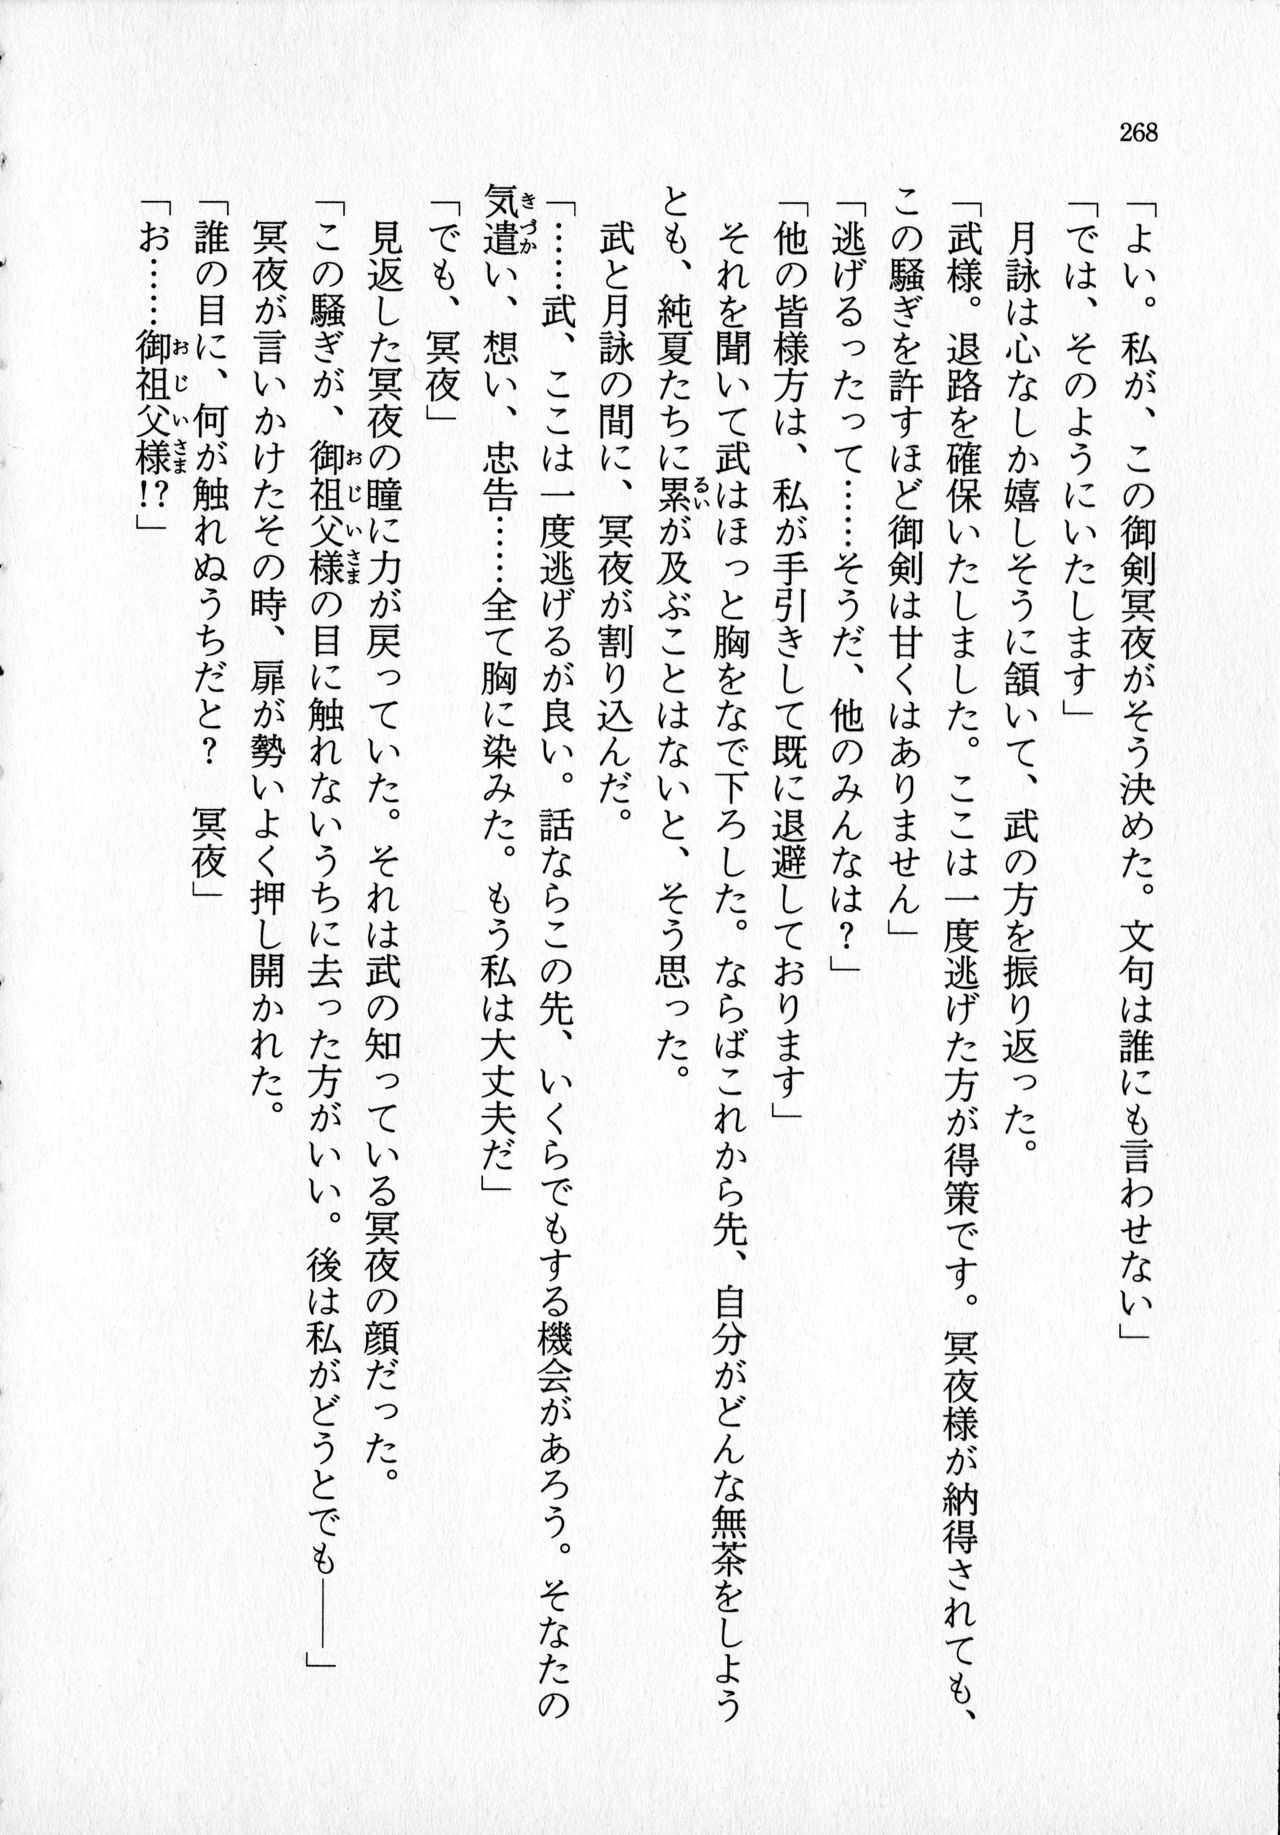 268
「よい。私が、この御剣冥夜がそう決めた。文句は誰にも言わせない」
「では、そのようにいたします」
　月詠は心なしか嬉しそうに頷いて、武の方を振り返った。
「武様。退路を確保いたしました。ここは一度逃げた方が得策です。冥夜様が納得されても、
この騒ぎを許すほど御剣は甘くはありません」
「逃げるったって……そうだ、他のみんなは？」
「他の皆様方は、私が手引きして既に退避しております」
　それを聞いて武はほっと胸をなで下ろした。ならばこれから先、自分がどんな無茶をしよう
とも、純夏たちに累が及ぶことはないと、そう思った。
　武と月詠の間に、冥夜が割り込んだ。
「……武、ここは一度逃げるが良い。話ならこの先、いくらでもする機会があろう。そなたの
気遣い、想い、忠告……全て胸に染みた。もう私は大丈夫だ」
「でも、冥夜」
　見返した冥夜の瞳に力が戻っていた。それは武の知っている冥夜の顔だった。
「この騒ぎが、御祖父様の目に触れないうちに去った方がいい。後は私がどうとでも――」
　冥夜が言いかけたその時、扉が勢いよく押し開かれた。
「誰の目に、何が触れぬうちだと？　冥夜」
「お……御祖父様!?」